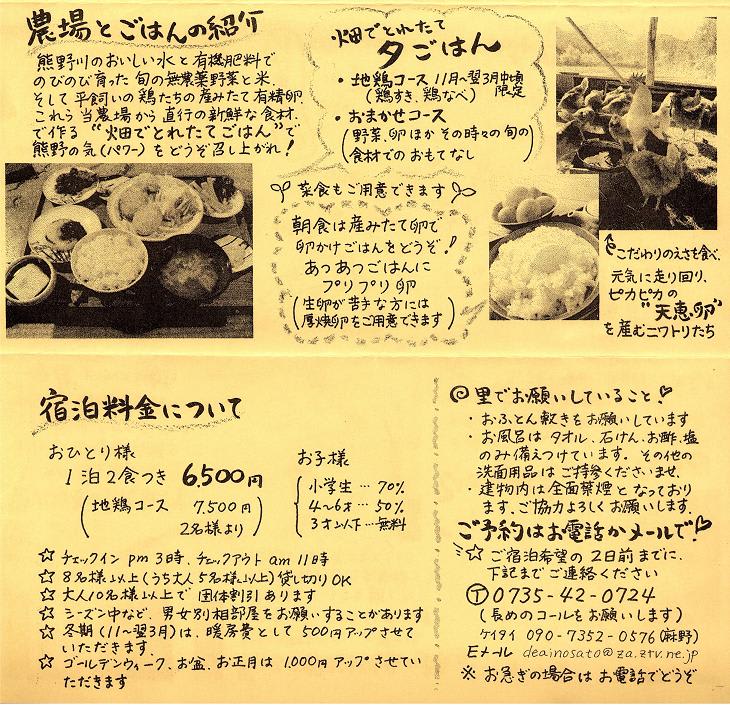 農場とごはんの紹介
熊野川のおいしい水と有機肥料で
のびのび育った旬の無農薬野菜と米、
そして平飼いの鶏たちの産みたて有精卵。
これら当農場から直行の新鮮な食材
で作る“畑でとれたてごはん”で
熊野の気(パワー)をどうぞ召し上がれ!
畑でとれたて
夕ごはん
・地鶏コース 11月〜翌3月中頃
(鶏すき、鶏なべ) 限定
・おまかせコース
(野菜、卵ほかその時々の旬の
食材でのおもてなし)
菜食もご用意できます
朝食は産みたて卵で
卵かけごはんをどうぞ!
あつあつごはんに
プリプリ卵
(生卵が苦手な方には
厚焼卵をご用意できます)
こだわりのえさを食べ、
元気に走り回り、
ピカピカの
“天恵卵”
を産むニワトリたち
宿泊料金について
おひとり様
1泊2食つき 6,500円
(地鶏コース 7,500円
2名様より)
お子様
小学生…70%
4〜6才…50%
3才以下…無料
☆ チェックイン pm 3時、チェックアウト am 11時
☆ 8名様以上(うち大人5名様以上)貸し切りOK
☆ 大人10名様以上で 団体割引あります
☆ シーズン中など、男女別相部屋をお願いすることがあります
☆ 冬期(11〜翌3月)は、暖房費として500円アップさせて
いただきます。
☆ ゴールデンウィーク、お盆、お正月は1,000円アップさせてい
ただきます
◎里でお願いしていること!
・おふとん敷きをお願いしています
・お風呂はタオル、石けん、お酢、塩
のみ備えつけています。その他の
洗面用品はご持参くださいませ。
・建物内は全面禁煙となっており
ます。ご協力よろしくお願いします。
ご予約はお電話かメールで!
☆ ご宿泊希望の2日前までに、
下記までご連絡ください
Ⓣ0735-42-0724
(長めのコールをお願いします)
ケイタイ 090-7352-0576(麻野)
Eメール deainosato@za.ztv.ne.jp
※ お急ぎの場合はお電話でどうぞ